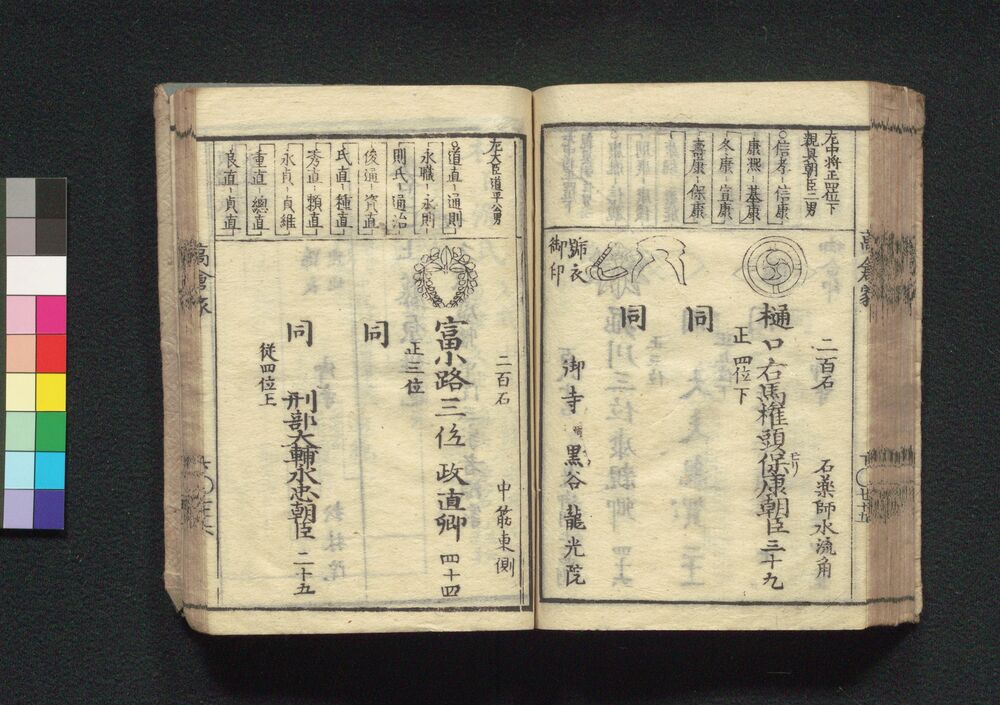 左中将正四位下
親具朝臣二男
信孝―信康
康凞―基康
冬康―宜康
壽康―保康
二百石
石薬師水流角
樋口右馬権頭保康朝臣三十九
正四位下
同
同
御寺
黒谷龍光院
御印
高倉家
左大臣道平公男
道直―通則
永職―永則
則氏―通治
俊通―資直
氏直―種直
秀直―頼直
永貞―貞維
重直―總直
良直―貞直
二百石
中筋東側
冨小路三位政直卿四十四
正三位
同
同
刑部大輔永忠朝臣二十九
従四位上
高倉家